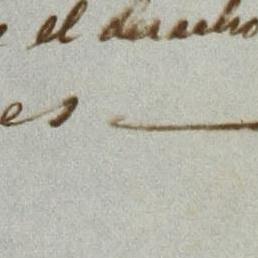 el derecho
es —